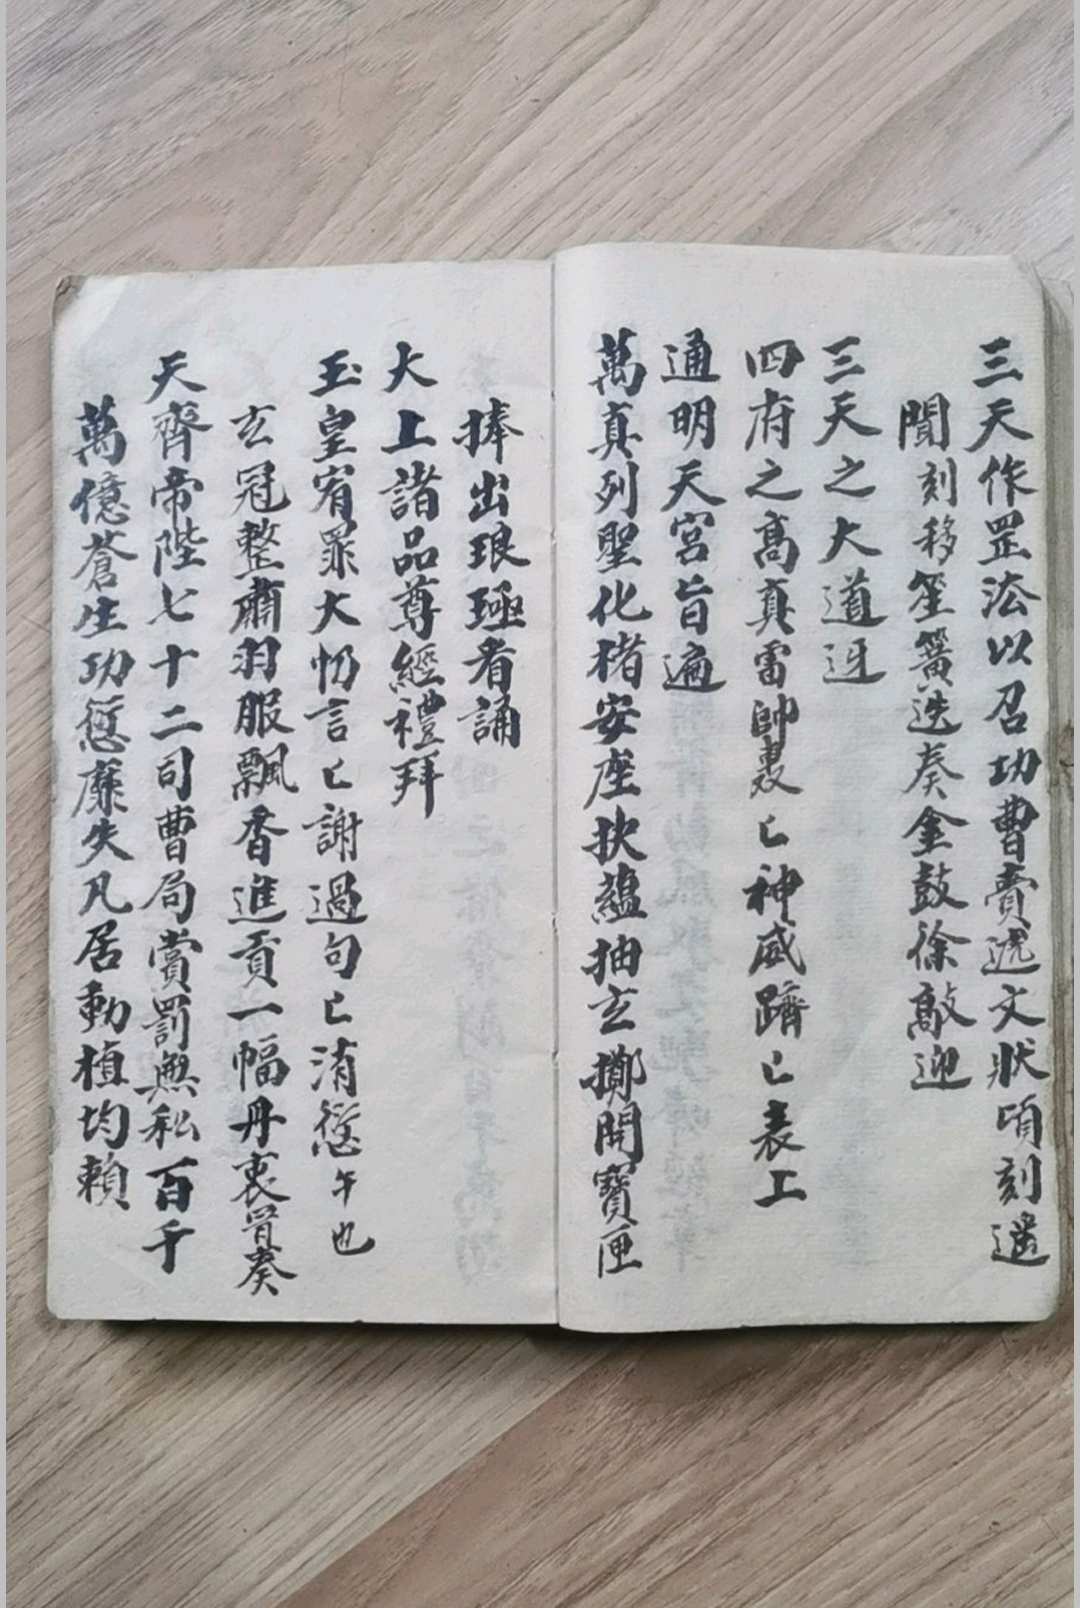 三天作罡法以召功曹賫遞文狀頃刻遥
聞刻移笙簧迭奏金鼓徐敲迎
三天之大道迓
四府之高真雷帥裏亡神威躋亡表工
通明天宮旨遍
萬真列聖化楮安座抉蘊抽玄擲開寶匣
捧出琅函看誦
大上諸品尊經禮拜
玉皇宥罪大忏言亡謝過句亡消愆午也
玄冠整肅羽服飄香進貢一幅丹衷晋奏
天齊帝陛七十二司曹局賞罰無私百千
萬億蒼生功愆靡失凡居動植均賴